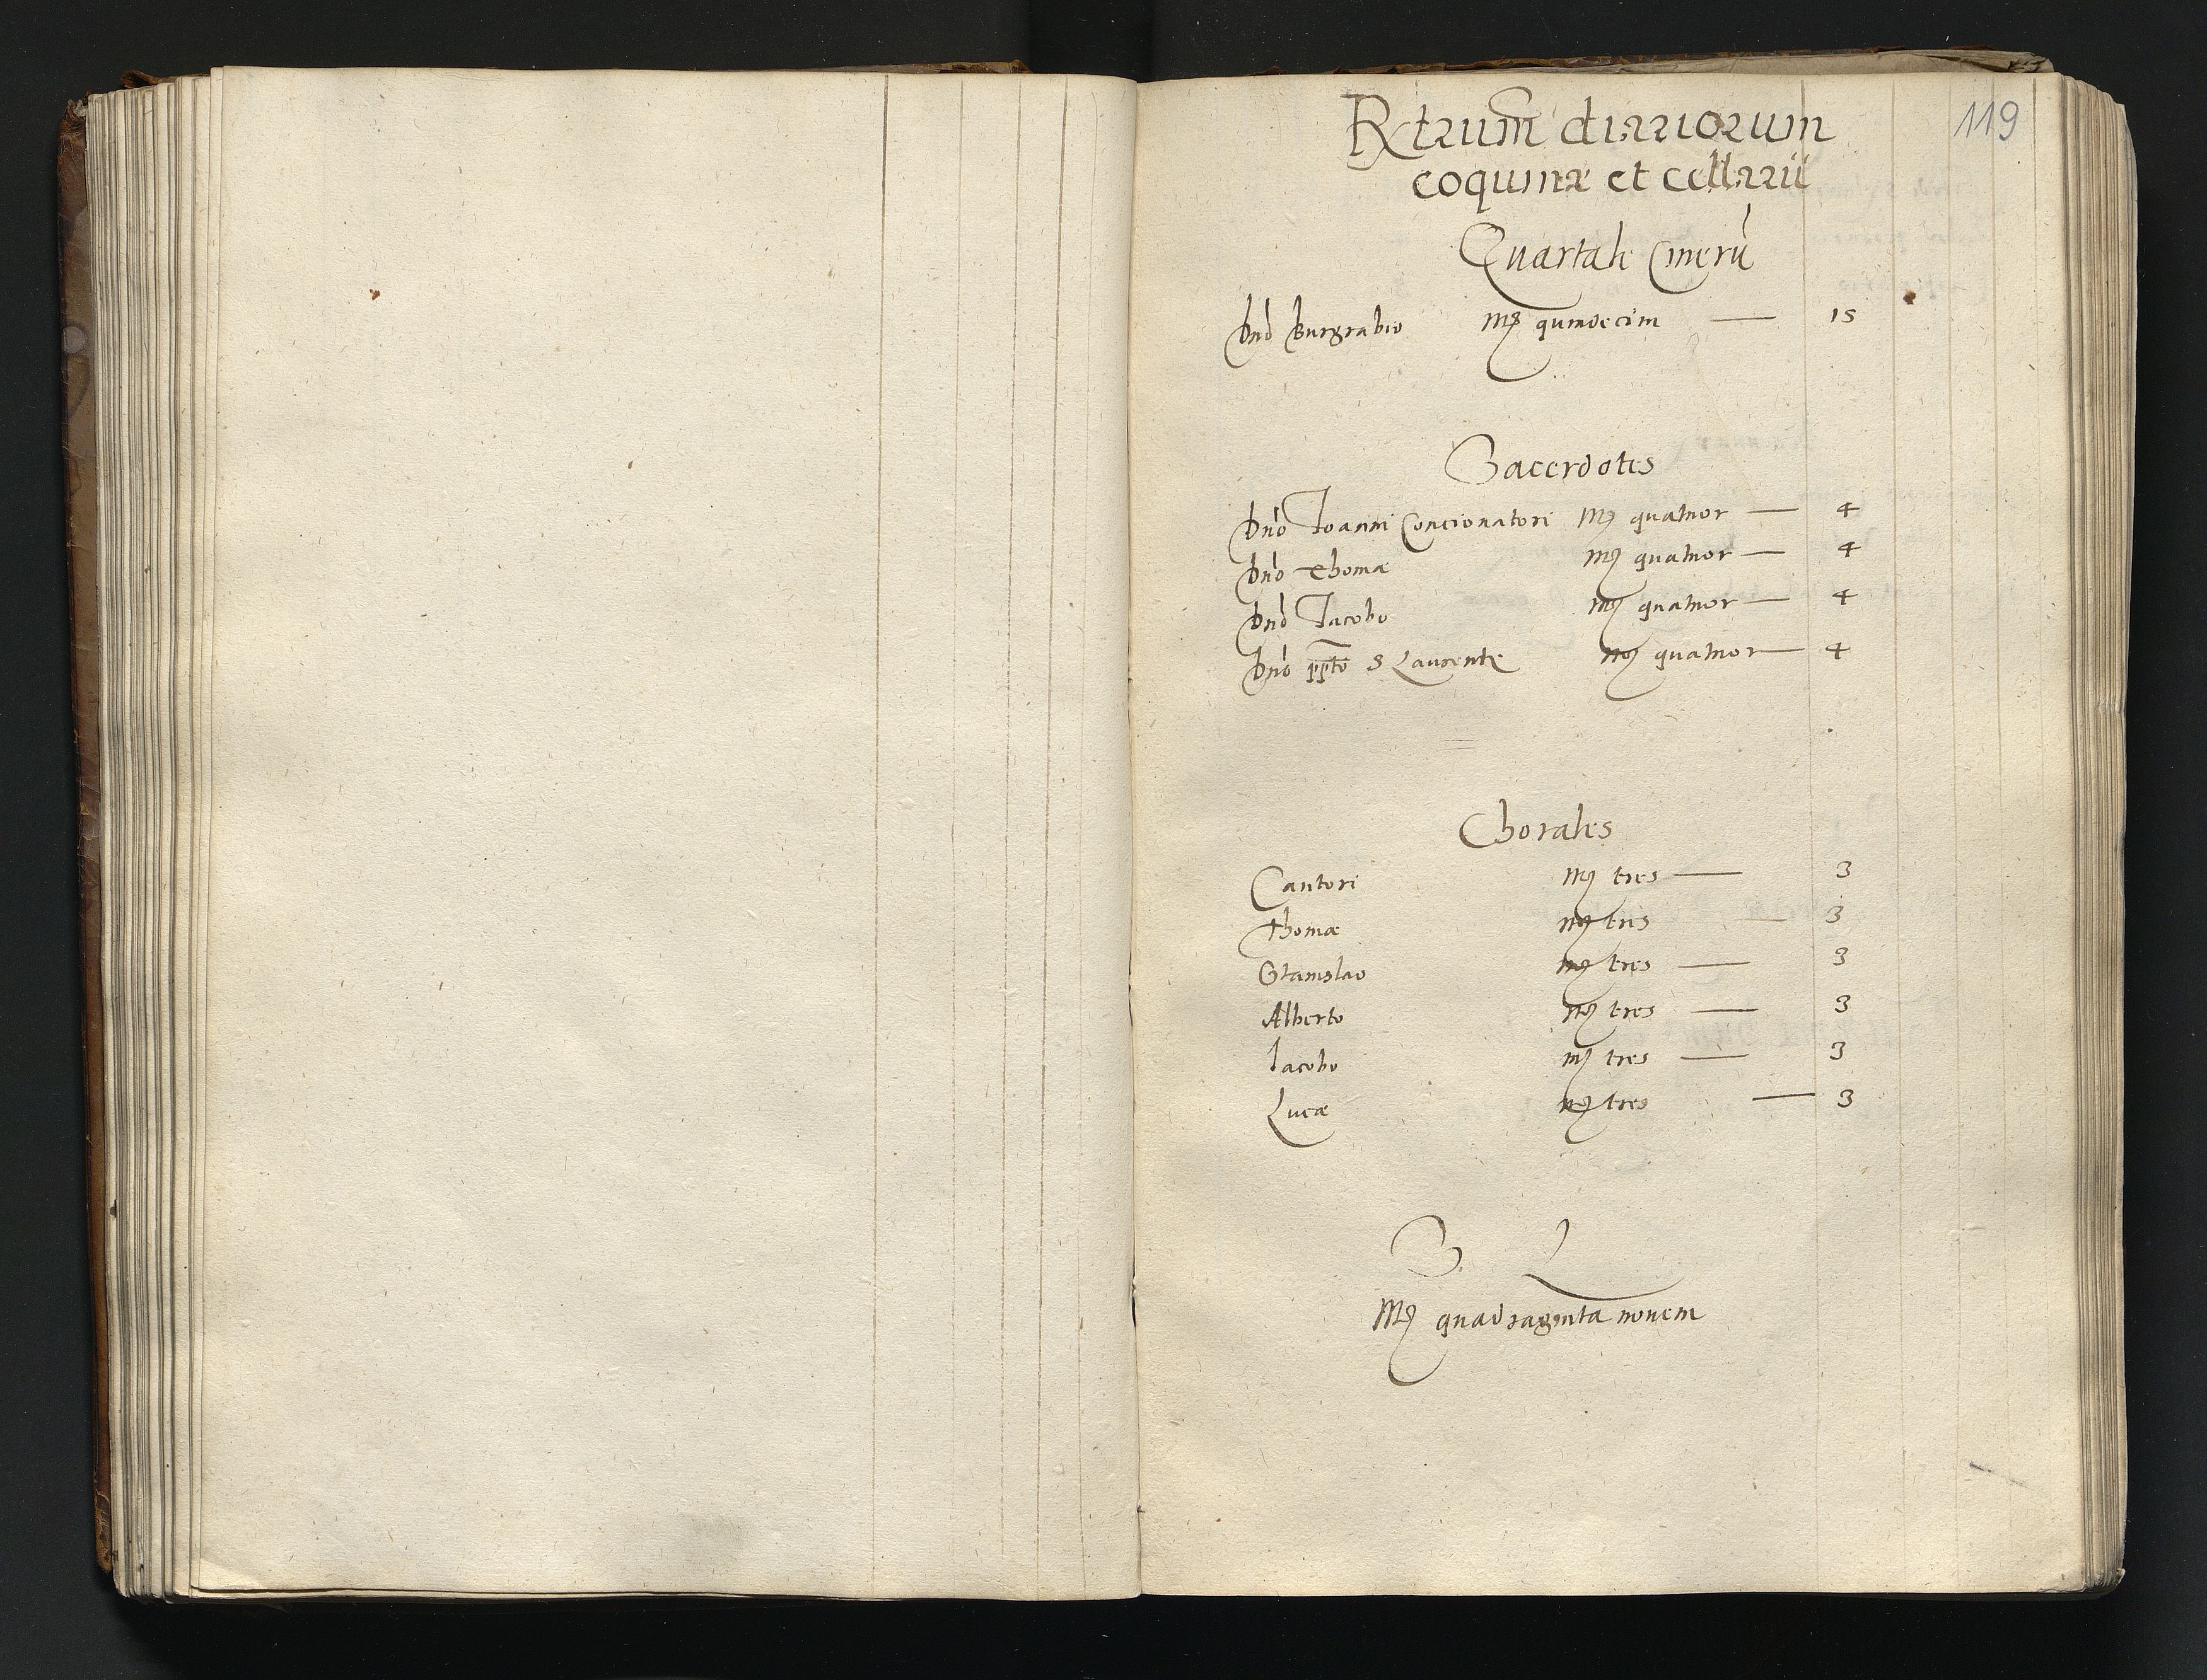 119
Rtrum diariorum
coquinæ et cellarii
Quartale Cinerū
Dnō Burgrabio Mȝ quindecim — 15
Sacerdotes
Dnō Joanni Concionatori Mȝ quatuor — 4
Dnō Thomæ Mȝ quatuor — 4
Dnō Jacobo Mȝ quatuor — 4
Dnō ppto S Laurentii Mȝ quatuor — 4
Chorales
Cantori Mȝ tres — 3
Thomæ Mȝ tres — 3
Stanislao Mȝ tres — 3
Alberto Mȝ tres — 3
Iacobo Mȝ tres — 3
Lucæ Mȝ tres — 3
S. L
Mȝ quadraginta novem